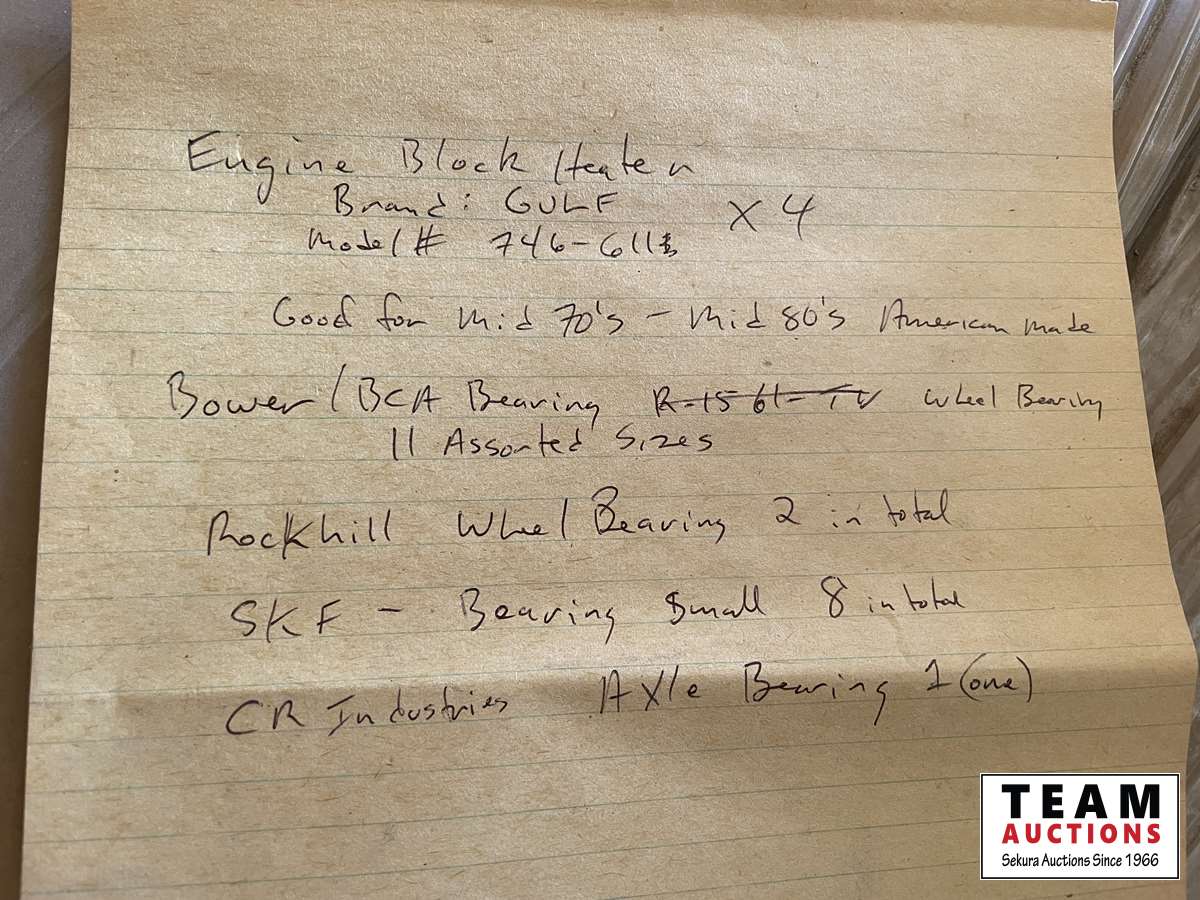 Engine Block Heater
Brand: GULF X 4
Model # 746-611
Good for Mid 70's - Mid 80's American made
Bower/BCA Bearing Wheel Bearing
11 Assorted Sizes
Rockhill Wheel Bearing 2 in total
SKF - Bearing Small 8 in total
CR Industries Axle Bearing 1 (one)
TEAM
AUCTIONS
Sekura Auctions Since 1966